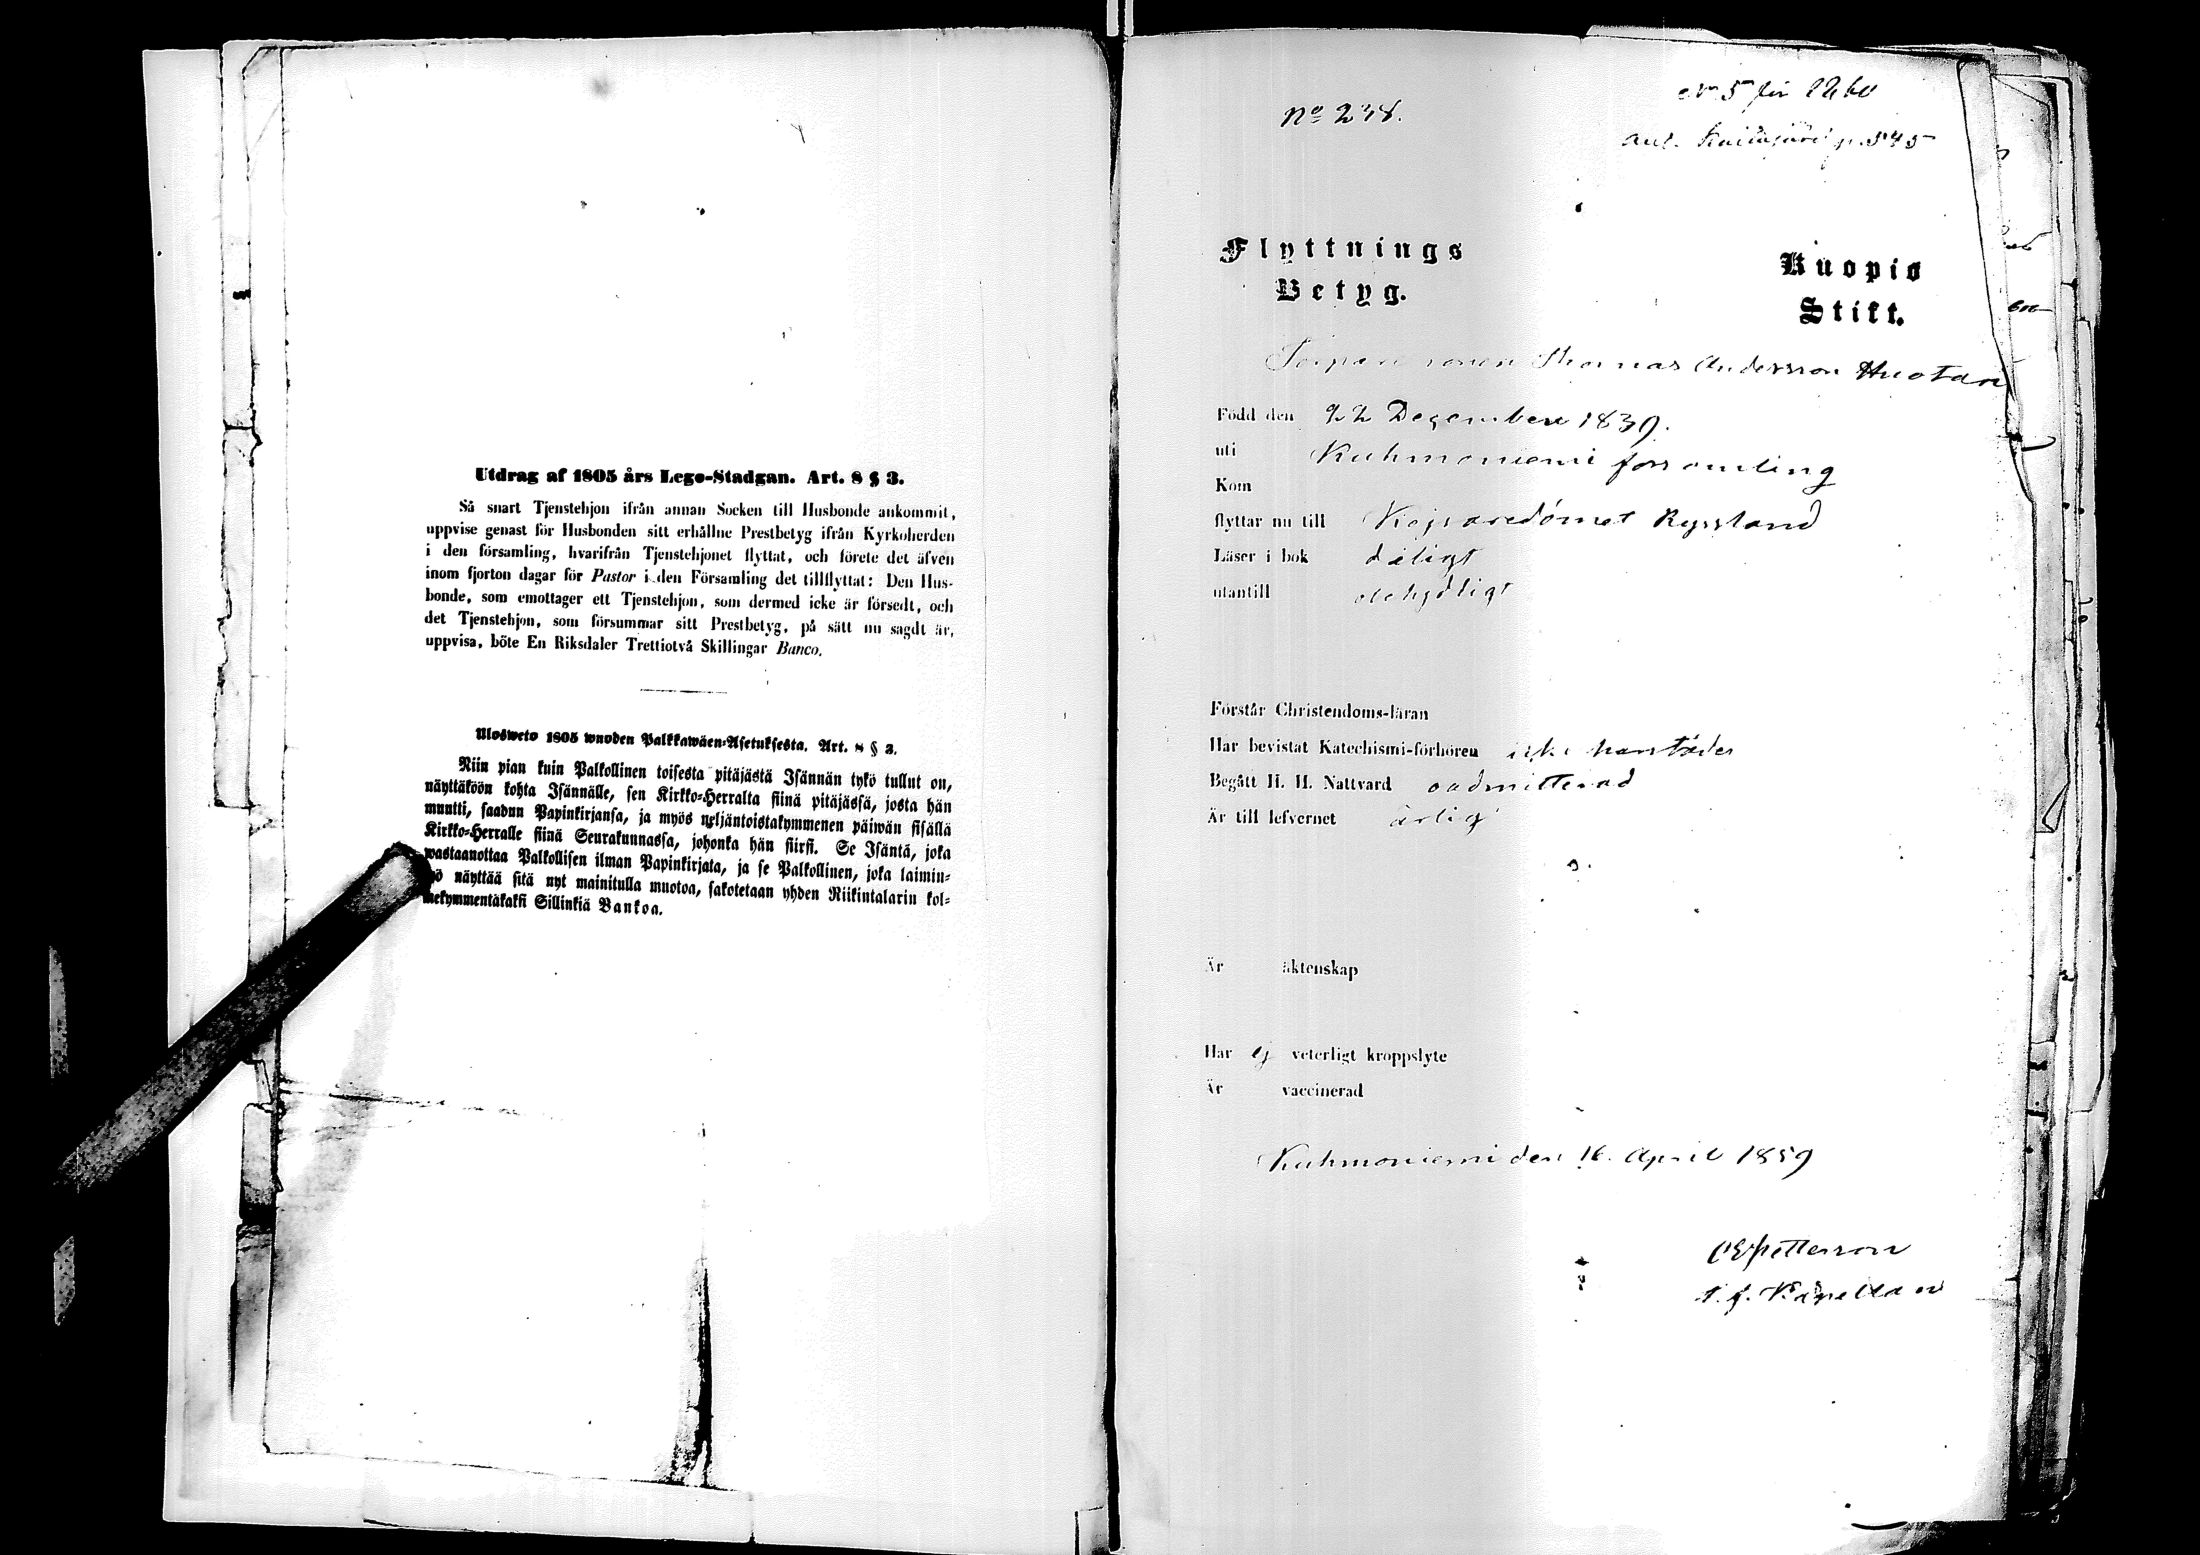 Utdrag af 1805 års Lego-Stadgan. Art. 8 § 3.
Så snart Tjenstehjon ifrån annan Socken till Husbonde ankommit,
uppvise genast för Husbonden sitt erhållne Prestbetyg ifrån Kyrkoherden
i den församling, hvarifrån Tjenstehjonet flyttat, och förete det äfven
inom fjorton dagar för Pastor i den Församling det tillflyttat: Den Hus-
bonde, som emottager ett Tjenstehjon, som dermed icke är försedt, och
det Tjenstehjon, som försummar sitt Prestbetyg, på sätt nu sagdt är,
uppvisa, böte En Riksdaler Trettiotvå Skillingar Banco.
Ulosweto 1805 wuoden Palkkawäen-Asetuksesta. Art. 8 § 3.
Niin pian kuin Palkollinen toisesta pitäjästä Isännän tykö tullut on,
näyttäköön kohta Isännälle, sen Kirkko-Herralta siinä pitäjässä, josta hän
muutti, saadun Papinkirjansa, ja myös neljäntoistakymmenen päiwän sisällä
Kirkko-Herralle siinä Seurakunnassa, johonka hän siirsi. Se Isäntä, joka
wastaanottaa Palkollisen ilman Papinkirjata, ja se Palkollinen, joka laimin-
yö näyttää sitä nyt mainitulla muotoa, sakotetaan yhden Riikintalarin kol-
mekymmentäkaksi Sillinkiä Bankoa.
No 238.
No 5 för 1860
Flyttnings
Betyg.
Kuopio
Stift.
Thomas Andersson Huotari
Född den 22 December 1839.
uti Kuhmoniemi församling
Kom
flyttar nu till Kejsaredömet Ryssland
Läser i bok dåligt
utantill obetydligt
Förstår Christendoms-läran
Har bevistat Katechismi-förhören icke
Begått H. H. Nattvard oadmitterad
Är till lefvernet ärlig
Är äktenskap
Har ej veterligt kroppslyte
Är vaccinerad
Kuhmoniemi den 16 April 1859
Petterson
t. f. Kapellan